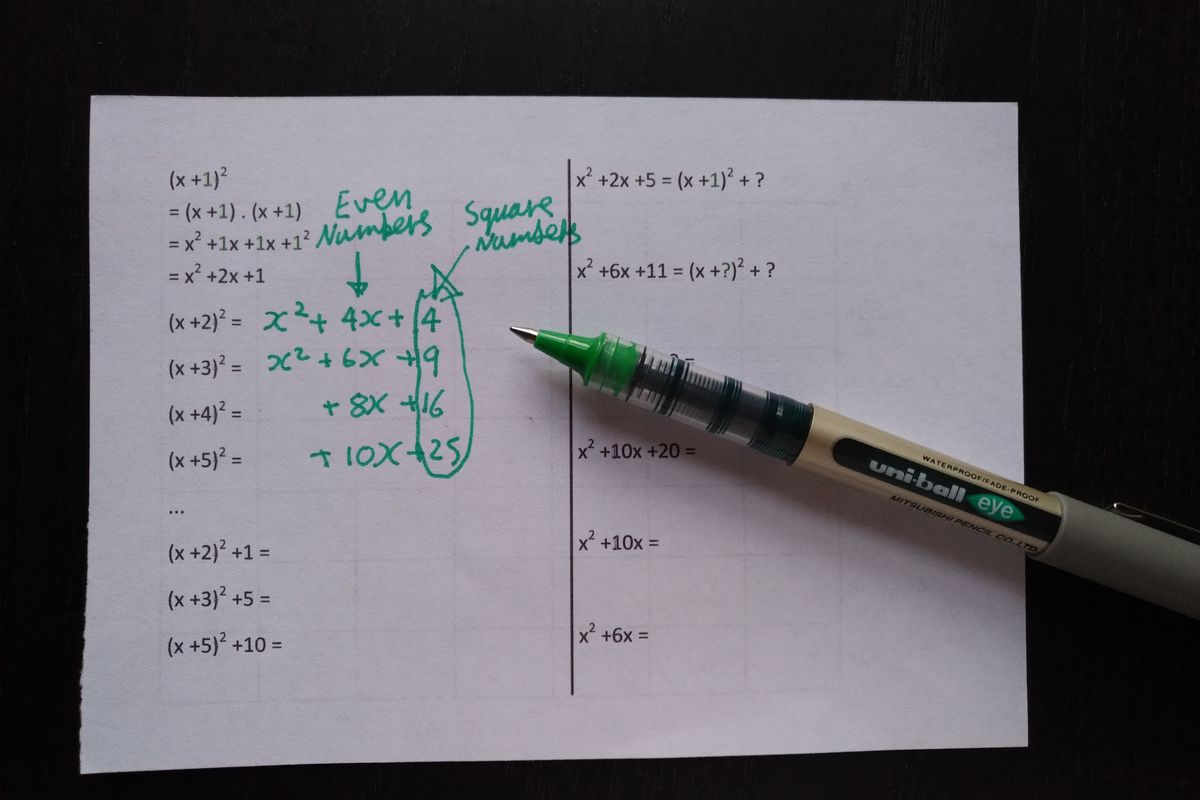 (x +1)²
= (x +1) . (x +1)
= x² +1x +1x +1²
= x² +2x +1
Even
Numbers
Square
Numbers
(x +2)² = x² + 4x + 4
(x +3)² = x² + 6x + 9
(x +4)² = + 8x + 16
(x +5)² = + 10x + 25
...
(x +2)² +1 =
(x +3)² +5 =
(x +5)² +10 =
x² +2x +5 = (x +1)² + ?
x² +6x +11 = (x +?)² + ?
=
x² +10x +20 =
x² +10x =
x² +6x =
uni-ball eye
WATERPROOF/FADE-PROOF
MITSUBISHI PENCIL CO.,LTD.